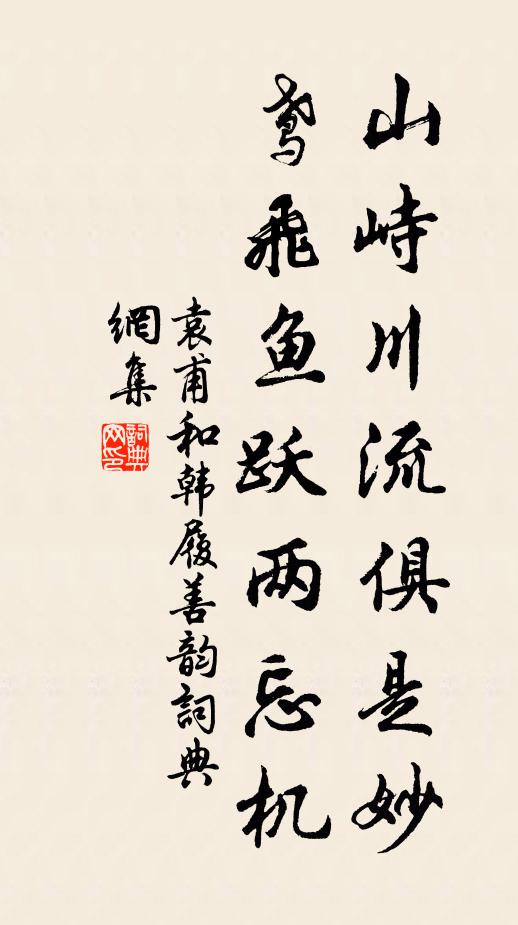 山峙川流俱是妙
鸢飞鱼跃两忘机
袁甫和韩履善韵詞典
網集
詞典
网印